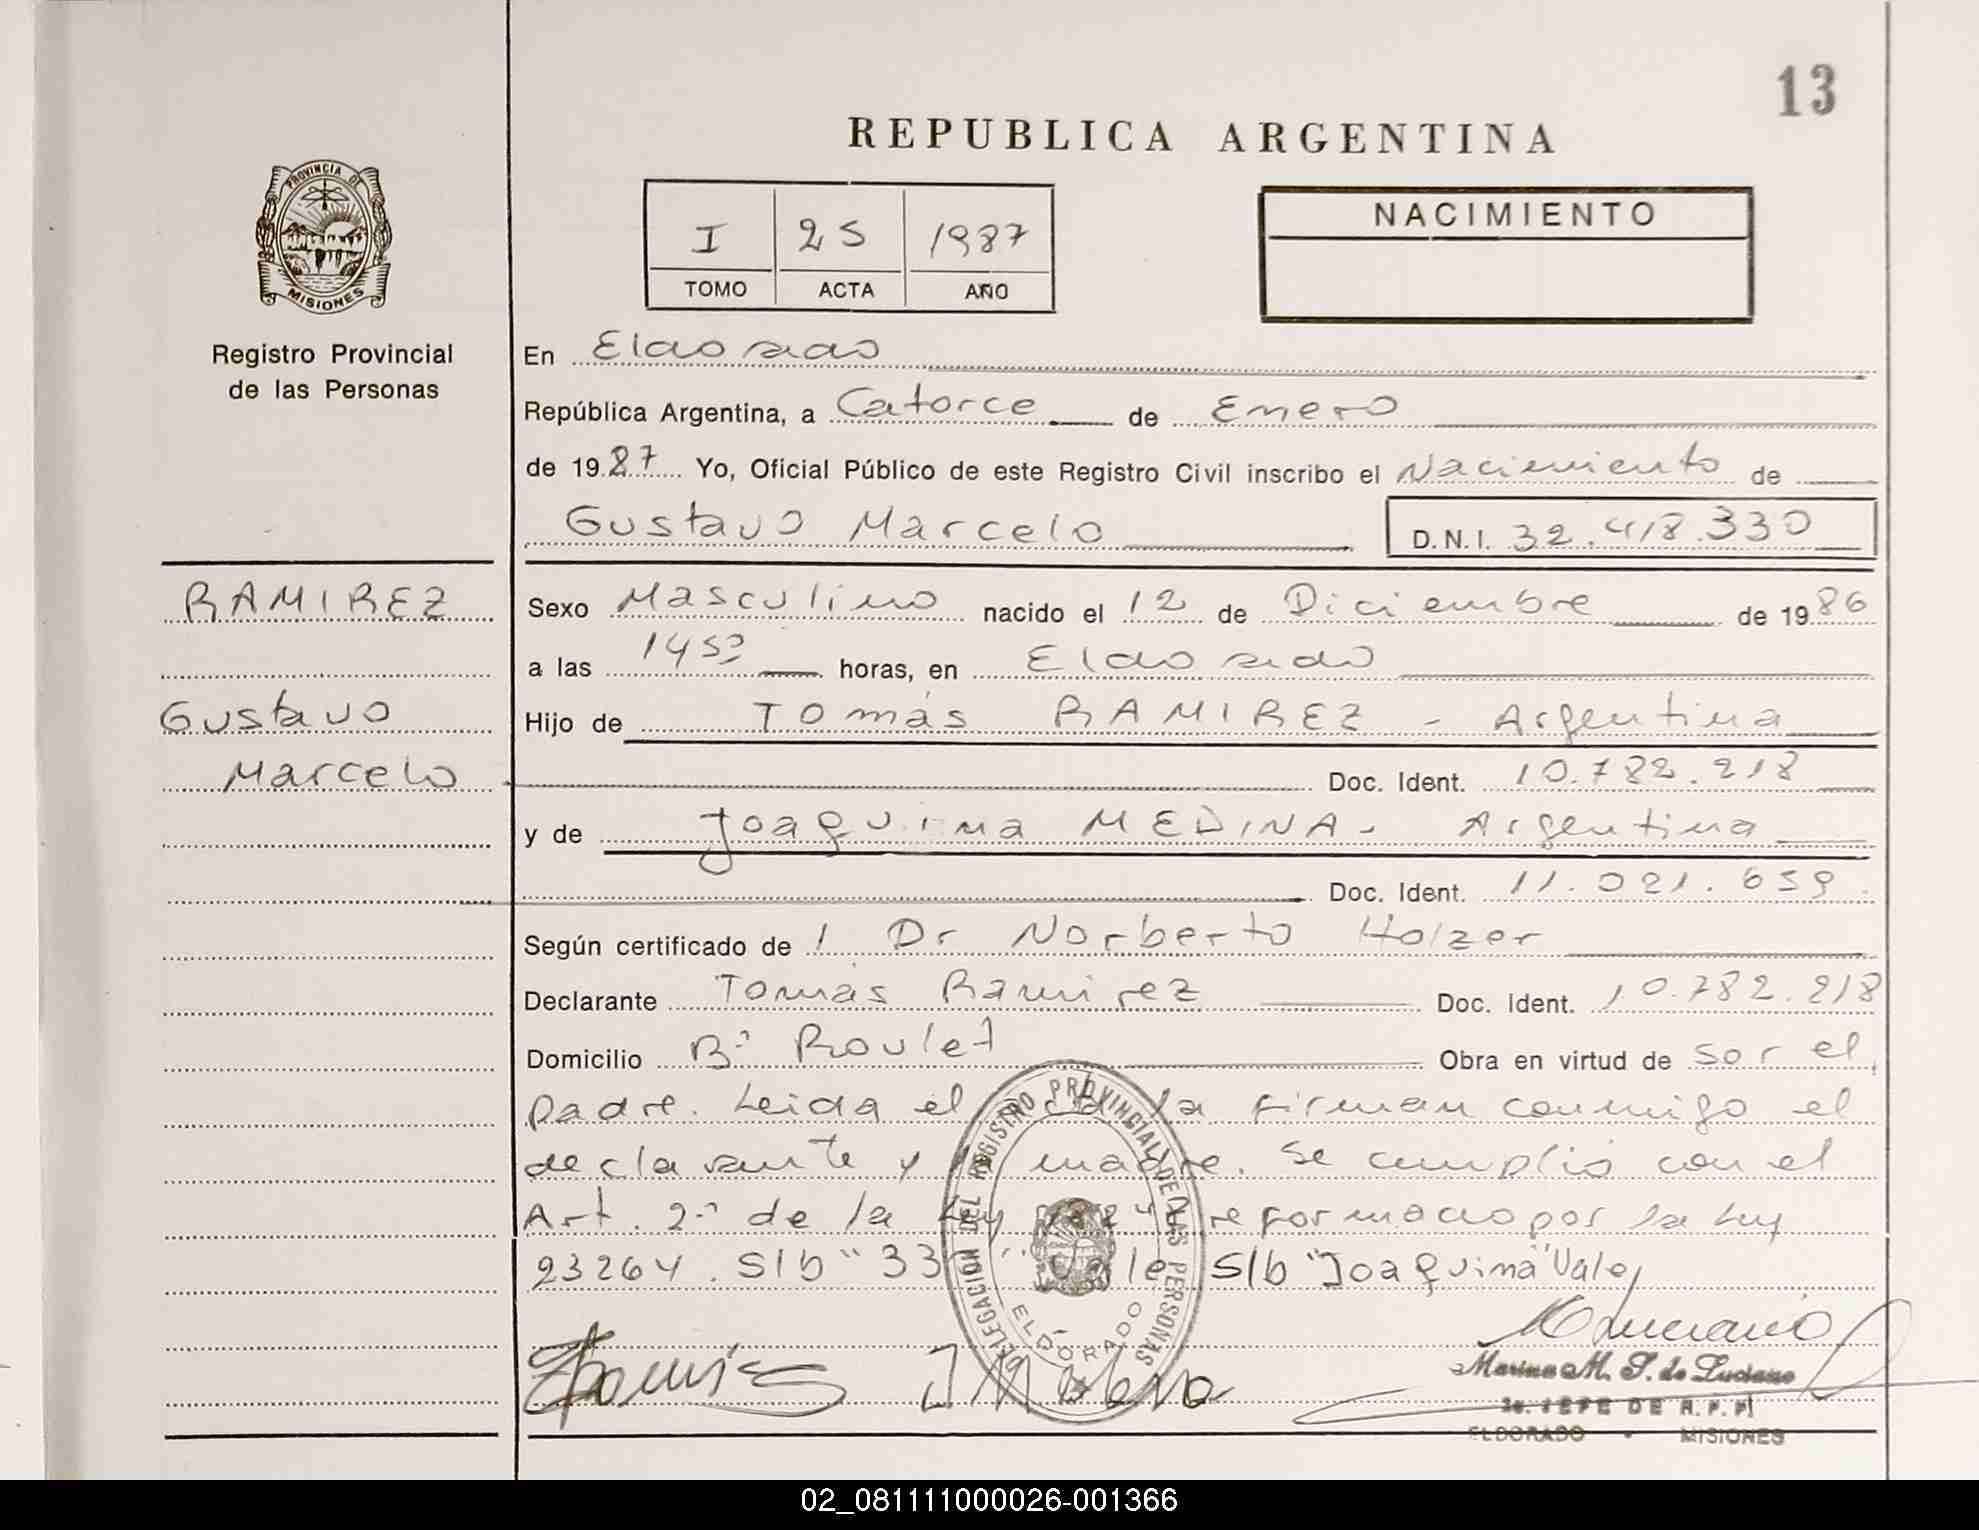 13
REPUBLICA ARGENTINA
PROVINCIA DE
MISIONES
Registro Provincial
de las Personas
I 25 1987
TOMO ACTA AÑO
NACIMIENTO
En Eldorado
República Argentina, a Catorce de Enero
de 1987 Yo, Oficial Público de este Registro Civil inscribo el Nacimiento de
Gustavo Marcelo D.N.I. 32.418.330
RAMIREZ
Gustavo
Marcelo
Sexo Masculino nacido el 12 de Diciembre de 1986
a las 14 50 horas, en Eldorado
Hijo de Tomás RAMIREZ - Argentina
Doc. Ident. 10.782.218
y de Joaquina MEDINA - Argentina
Doc. Ident. 11.021.659
Según certificado de 1 Dr Norberto Holzer
Declarante Tomás Ramirez Doc. Ident. 10.782.218
Domicilio Bº Roulet Obra en virtud de ser el
padre. Leida el acta la firman conmigo el
declarante y la madre. Se cumplió con el
Art. 2º de la Ley reformado por la Ley
23264. S/b "33 " Vale. S/b "Joaquina" Vale,
DELEGACION DEL REGISTRO PROVINCIAL DE LAS PERSONAS
ELDORADO
Marina M. S. de Luciano
JEFE DE R. P. P.
ELDORADO - MISIONES
02_081111000026-001366